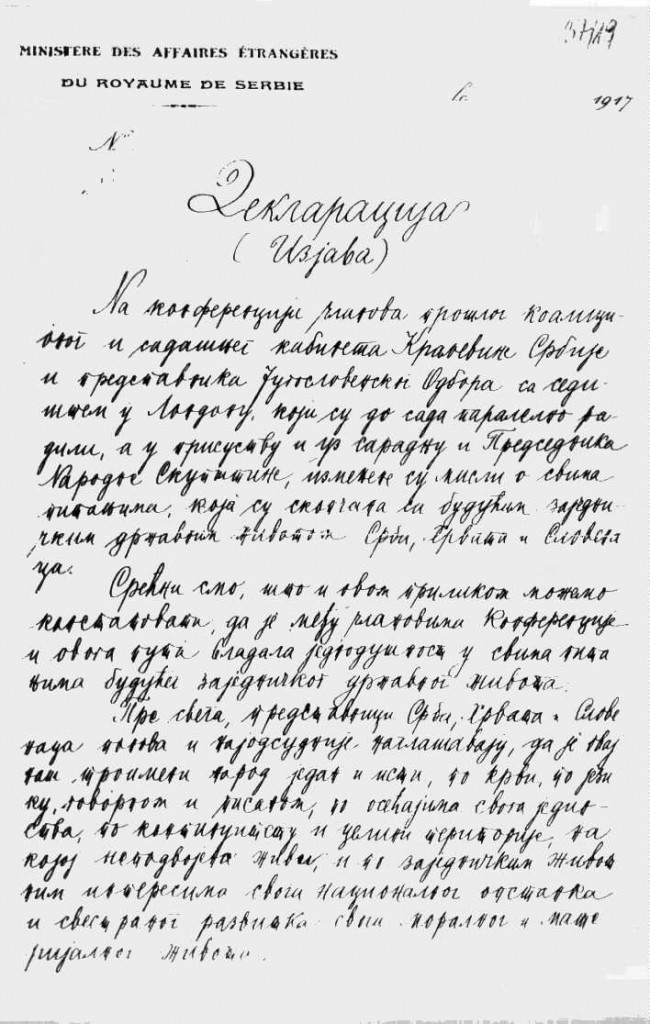 MINISTERE DES AFFAIRES ÉTRANGÈRES
DU ROYAUME DE SERBIE
le 1917
№
Декларација
(Изјава)
На конференцији чланова прошлог коалици-
оног и садашњег кабинета Краљевине Србије
и представника Југословенског Одбора са седи-
штем у Лондону, који су до сада паралелно ра-
дили, а у присуству и уз сарадњу и Председника
Народне Скупштине, измењене су мисли о свима
питањима, која су скопчана са будућим заједни-
чким државним животом Срба, Хрвата и Словена
ца.
Срећни смо, што и овом приликом можемо
констатовати, да је међу члановима Конференције
и овога пута владала једнодушност у свима пита
њима будућег заједничког државног живота.
Пре свега, представници Срба, Хрвата и Слове
наца понова и најодсудније наглашавају, да је овај
наш троимени народ један и исти, по крви, по јези
ку, говорном и писаном, по осећајима свога једин-
ства, по континуитету и целини територије, на
којој неподвојено живи, и по заједничким живот
ним интересима свога националног опстанка
и свестраног развитка свога моралног и мате
ријалног живота.